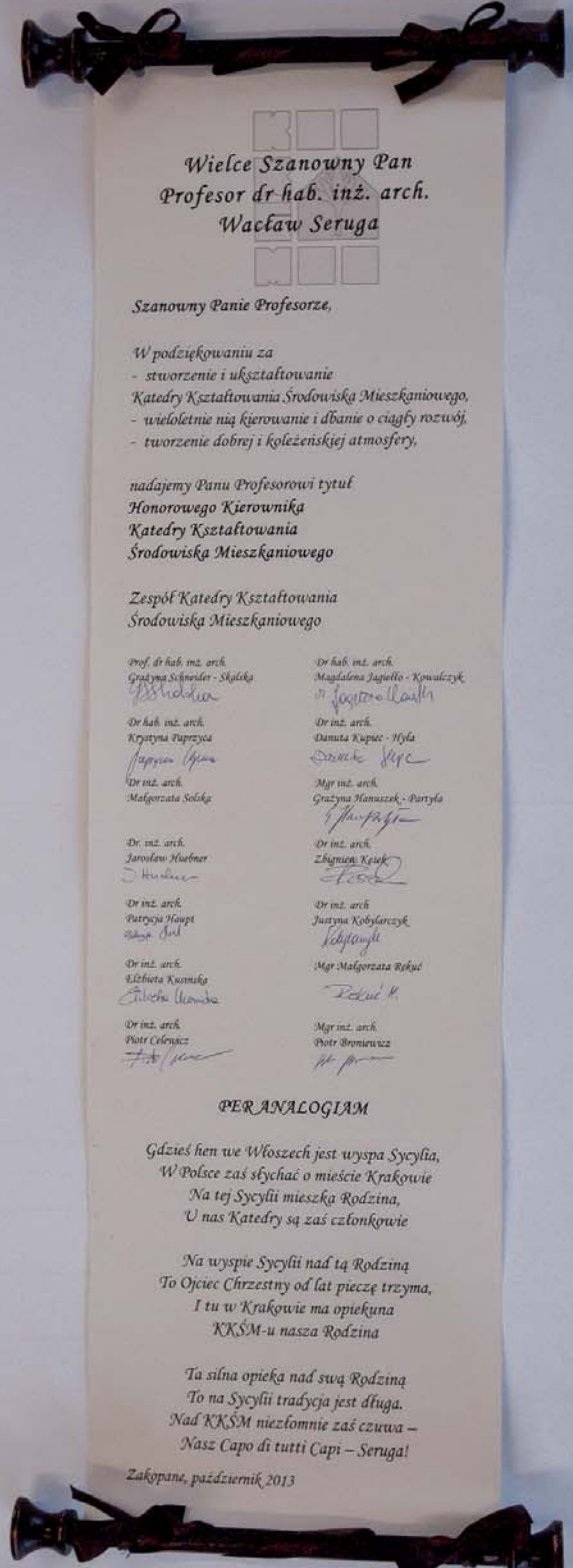 Wielce Szanowny Pan
Profesor dr hab. inż. arch.
Wacław Seruga
Szanowny Panie Profesorze,
W podziękowaniu za
- stworzenie i ukształtowanie
Katedry Kształtowania Środowiska Mieszkaniowego,
- wieloletnie nią kierowanie i dbanie o ciągły rozwój,
- tworzenie dobrej i koleżeńskiej atmosfery,
nadajemy Panu Profesorowi tytuł
Honorowego Kierownika
Katedry Kształtowania
Środowiska Mieszkaniowego
Zespół Katedry Kształtowania
Środowiska Mieszkaniowego
Prof. dr hab. inż. arch.
Grażyna Schneider - Skalska
Dr hab. inż. arch.
Magdalena Jagiełło - Kowalczyk
Dr hab. inż. arch.
Krystyna Paprzyca
Dr inż. arch.
Danuta Kupiec - Hyła
Dr inż. arch.
Małgorzata Solska
Mgr inż. arch.
Grażyna Hanuszek - Partyła
Dr. inż. arch.
Jarosław Huebner
Dr inż. arch.
Zbigniew Kęsek
Dr inż. arch.
Patrycja Haupt
Dr inż. arch
Justyna Kobylarczyk
Dr inż. arch.
Elżbieta Kusińska
Mgr Małgorzata Rekuć
Rekuć M.
Dr inż. arch.
Piotr Celewicz
Mgr inż. arch.
Piotr Broniewicz
PER ANALOGIAM
Gdzieś hen we Włoszech jest wyspa Sycylia,
W Polsce zaś słychać o mieście Krakowie
Na tej Sycylii mieszka Rodzina,
U nas Katedry są zaś członkowie
Na wyspie Sycylii nad tą Rodziną
To Ojciec Chrzestny od lat pieczę trzyma,
I tu w Krakowie ma opiekuna
KKŚM-u nasza Rodzina
Ta silna opieka nad swą Rodziną
To na Sycylii tradycja jest długa.
Nad KKŚM niezłomnie zaś czuwa –
Nasz Capo di tutti Capi – Seruga!
Zakopane, październik 2013